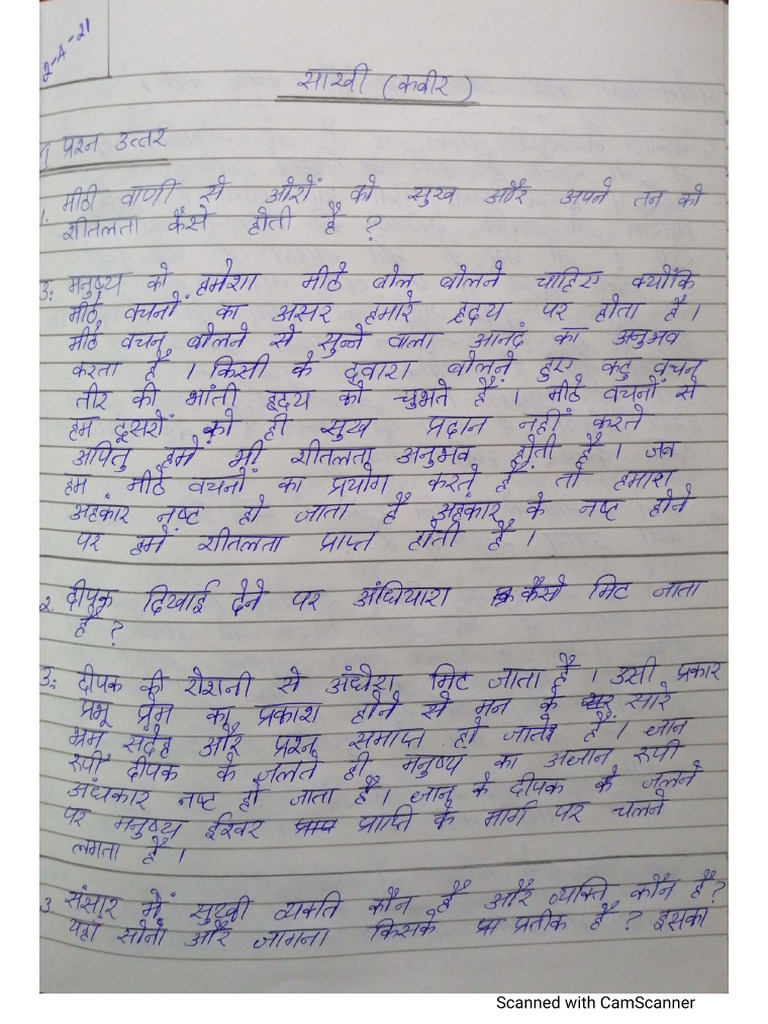 2-A-21
साखी (कबीर)
प्रश्न उत्तर
1. मीठी वाणी से ओरों को सुख और अपने तन को
शीतलता कैसे होती है ?
उ: मनुष्य को हमेशा मीठे बोल बोलने चाहिए क्योंकि
मीठे वचनों का असर हमारे हृदय पर होता है ।
मीठे वचन बोलने से सुन्ने वाला आनदं का अनुभव
करता है । किसी के दुवारा बोलने हुए कटु वचन
तीर की भांती हृदय को चुभते हैं । मीठे वचनों से
हम दूसरों को ही सुख प्रदान नहीं करते
अपितु हमे भी शीतलता अनुभव होती है । जब
हम मीठे वचनों का प्रयोग करते हैं तो हमारा
अहंकार नष्ट हो जाता है अहंकार के नष्ट होने
पर हमें शीतलता प्राप्त होती है ।
2. दीपक दिखाई देने पर अंधियारा कैसे मिट जाता
है ?
उ: दीपक की रोशनी से अंधेरा मिट जाता है । उसी प्रकार
प्रभू प्रेम का प्रकाश होने से मन के सारे
भ्रम संदेह और प्रश्न समाप्त हो जाते हैं । ज्ञान
रूपी दीपक के जलते ही मनुष्य का अज्ञान रूपी
अंधकार नष्ट हो जाता है । ज्ञान के दीपक के जलने
पर मनुष्य ईश्वर प्राप्ति के मार्ग पर चलने
लगता है ।
3. संसार में सुखी व्यक्ति कौन है और व्यक्ति कौन है ?
यहाँ सोना और जागना किसके प्रतीक है ? इसका
Scanned with CamScanner